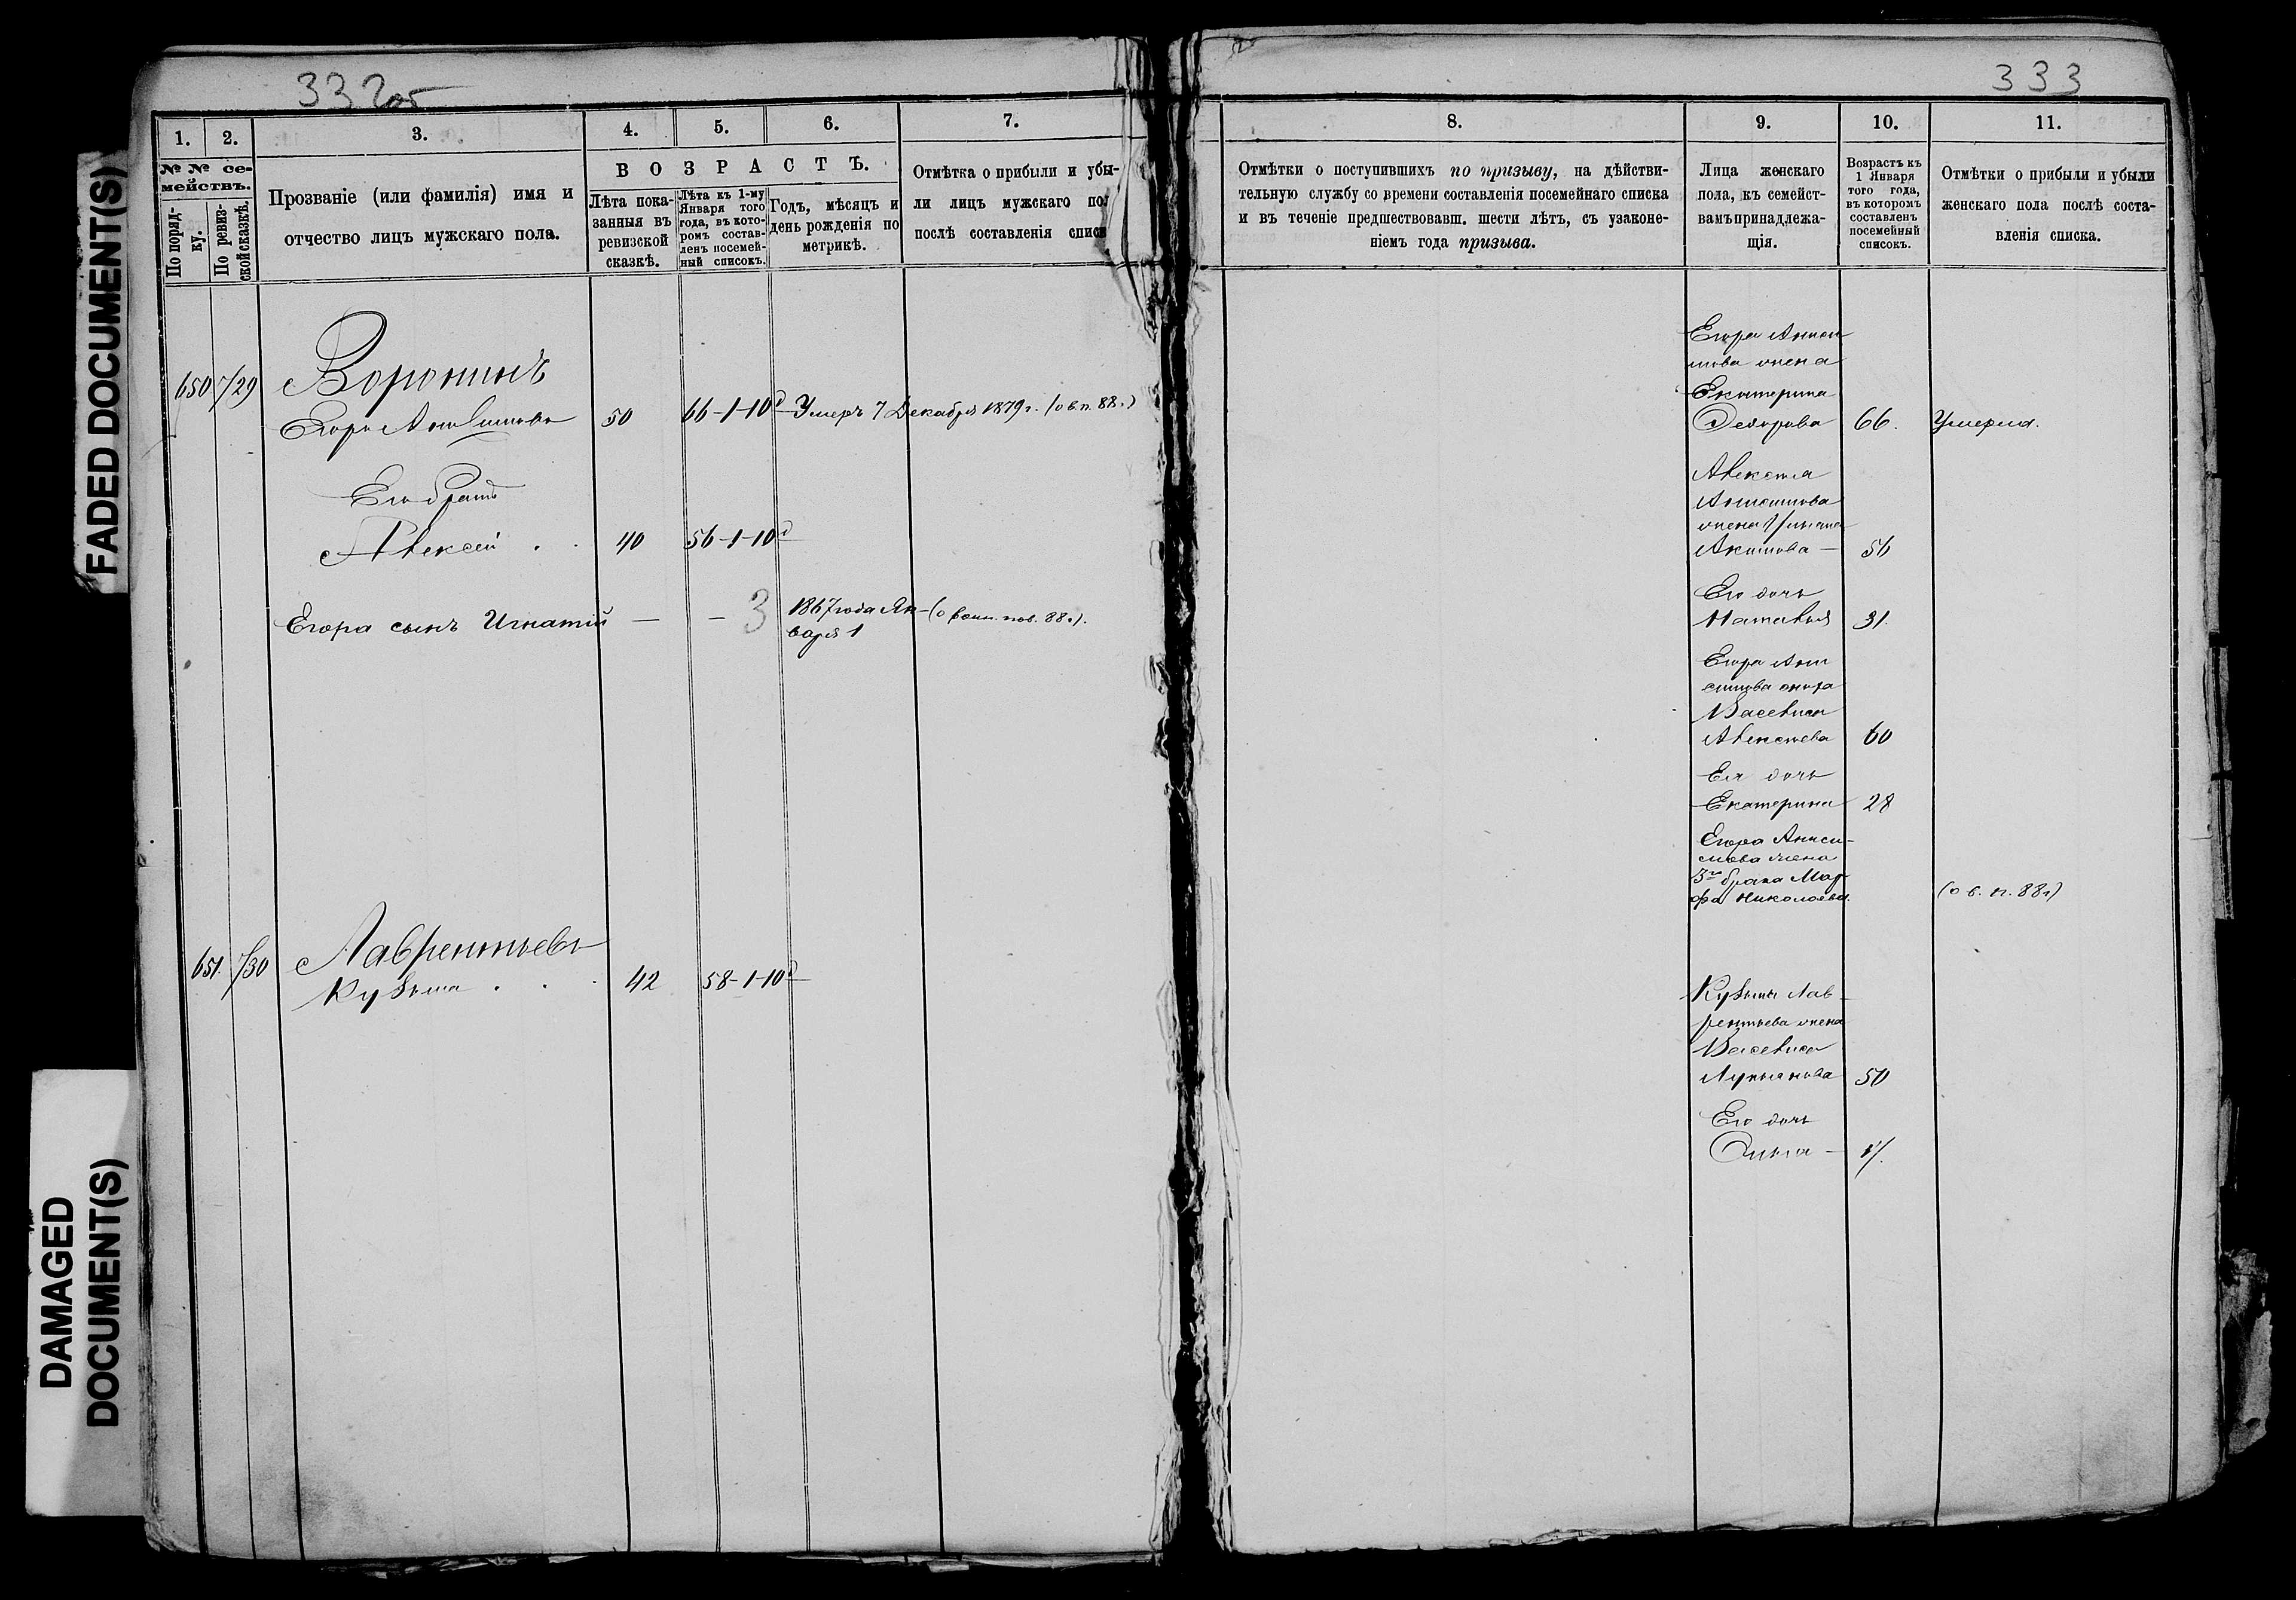 332об
333
FADED DOCUMENT(S)
DAMAGED
DOCUMENT(S)
1.
2.
3.
4.
5.
6.
7.
№ № се-
мействъ.
По поряд-
ку.
По ревиз-
ской сказкѣ.
Прозваніе (или фамилія) имя и
отчество лицъ мужскаго пола.
ВОЗРАСТЪ.
Лѣта пока-
занныя въ
ревизской
сказкѣ.
Лѣта къ 1-му
Января того
года, въ кото-
ромъ состав-
ленъ посемей-
ный списокъ.
Годъ, мѣсяцъ и
день рожденія по
метрикѣ.
Отмѣтка о прибыли и убы-
ли лицъ мужскаго пол
послѣ составленія списк
650 729 Воронинъ
Егоръ Анисимовъ 50 66-1-10д Умеръ 7 Декабря 1879 г. (о в. п. 88.)
Его братъ
Алексей . . 40 56-1-10д
Егора сынъ Игнатій — — 3 1867 года Ян- (о воин. пов. 88.).
варя 1
651. 730 Лаврентьевъ
Кузьма . . . 42 58-1-10д
8.
9.
10.
11.
Отмѣтки о поступившихъ по призыву, на дѣйстви-
тельную службу со времени составленія посемейнаго списка
и въ теченіе предшествовавш. шести лѣтъ, съ узаконе-
ніемъ года призыва.
Лица женскаго
пола, къ семейст-
вамъ принадлежа-
щія.
Возрастъ къ
1 Января
того года,
въ которомъ
составленъ
посемейный
списокъ.
Отмѣтки о прибыли и убыли
женскаго пола послѣ соста-
вленія списка.
Егора Аниси
мова жена
Екатерина
Федорова 66. Умерла.
Алексѣя
Анисимова
жена
Акимова — 56
Его дочь
Наталья 31.
Егора Ани
симова сноха
Василиса
Алексѣева 60
Ея дочь
Екатерина 28
Егора Аниси-
мова жена
3го брака Мар-
фа Николаева. (о в. п. 88 г)
Кузьмы Лав-
рентьева жена
Василиса
Лукьянова 50
Его дочь
17.